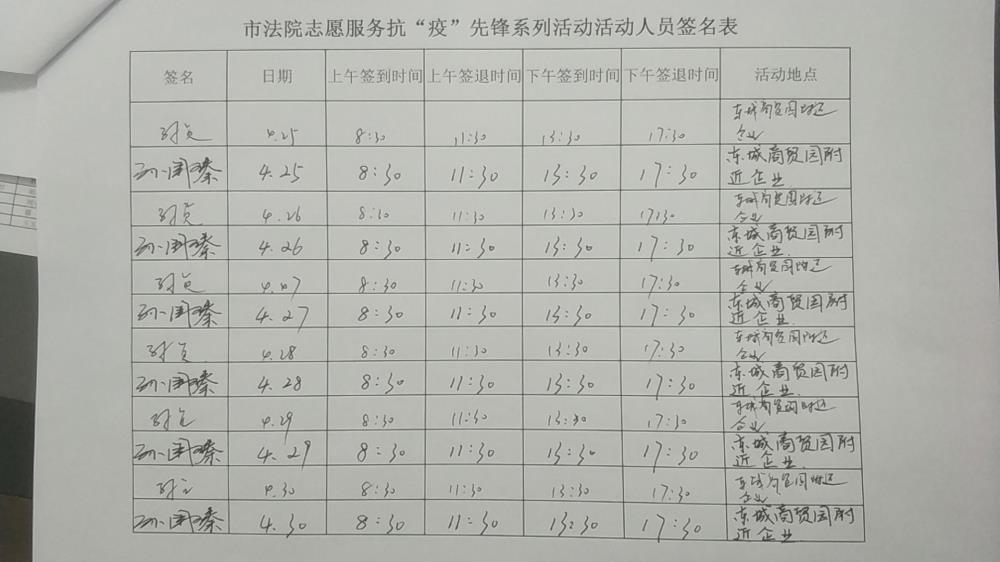 市法院志愿服务抗“疫”先锋系列活动活动人员签名表
签名 日期 上午签到时间 上午签退时间 下午签到时间 下午签退时间 活动地点
4.25 8:30 11:30 13:30 17:30 东城商贸园附近
企业
孙国臻 4.25 8:30 11:30 13:30 17:30 东城商贸园附
近企业.
4.26 8:30 11:30 13:30 17:30 东城商贸园附近
企业
孙国臻 4.26 8:30 11:30 13:30 17:30 东城商贸园附
近企业.
4.27 8:30 11:30 13:30 17:30 东城商贸园附近
企业
孙国臻 4.27 8:30 11:30 13:30 17:30 东城商贸园附
近企业.
4.28 8:30 11:30 13:30 17:30 东城商贸园附近
企业
孙国臻 4.28 8:30 11:30 13:30 17:30 东城商贸园附
近企业.
4.29 8:30 11:30 13:30 17:30 东城商贸园附近
企业
孙国臻 4.29 8:30 11:30 13:30 17:30 东城商贸园附
近企业.
4.30 8:30 11:30 13:30 17:30 东城商贸园附近
企业
孙国臻 4.30 8:30 11:30 13:30 17:30 东城商贸园附
近企业.